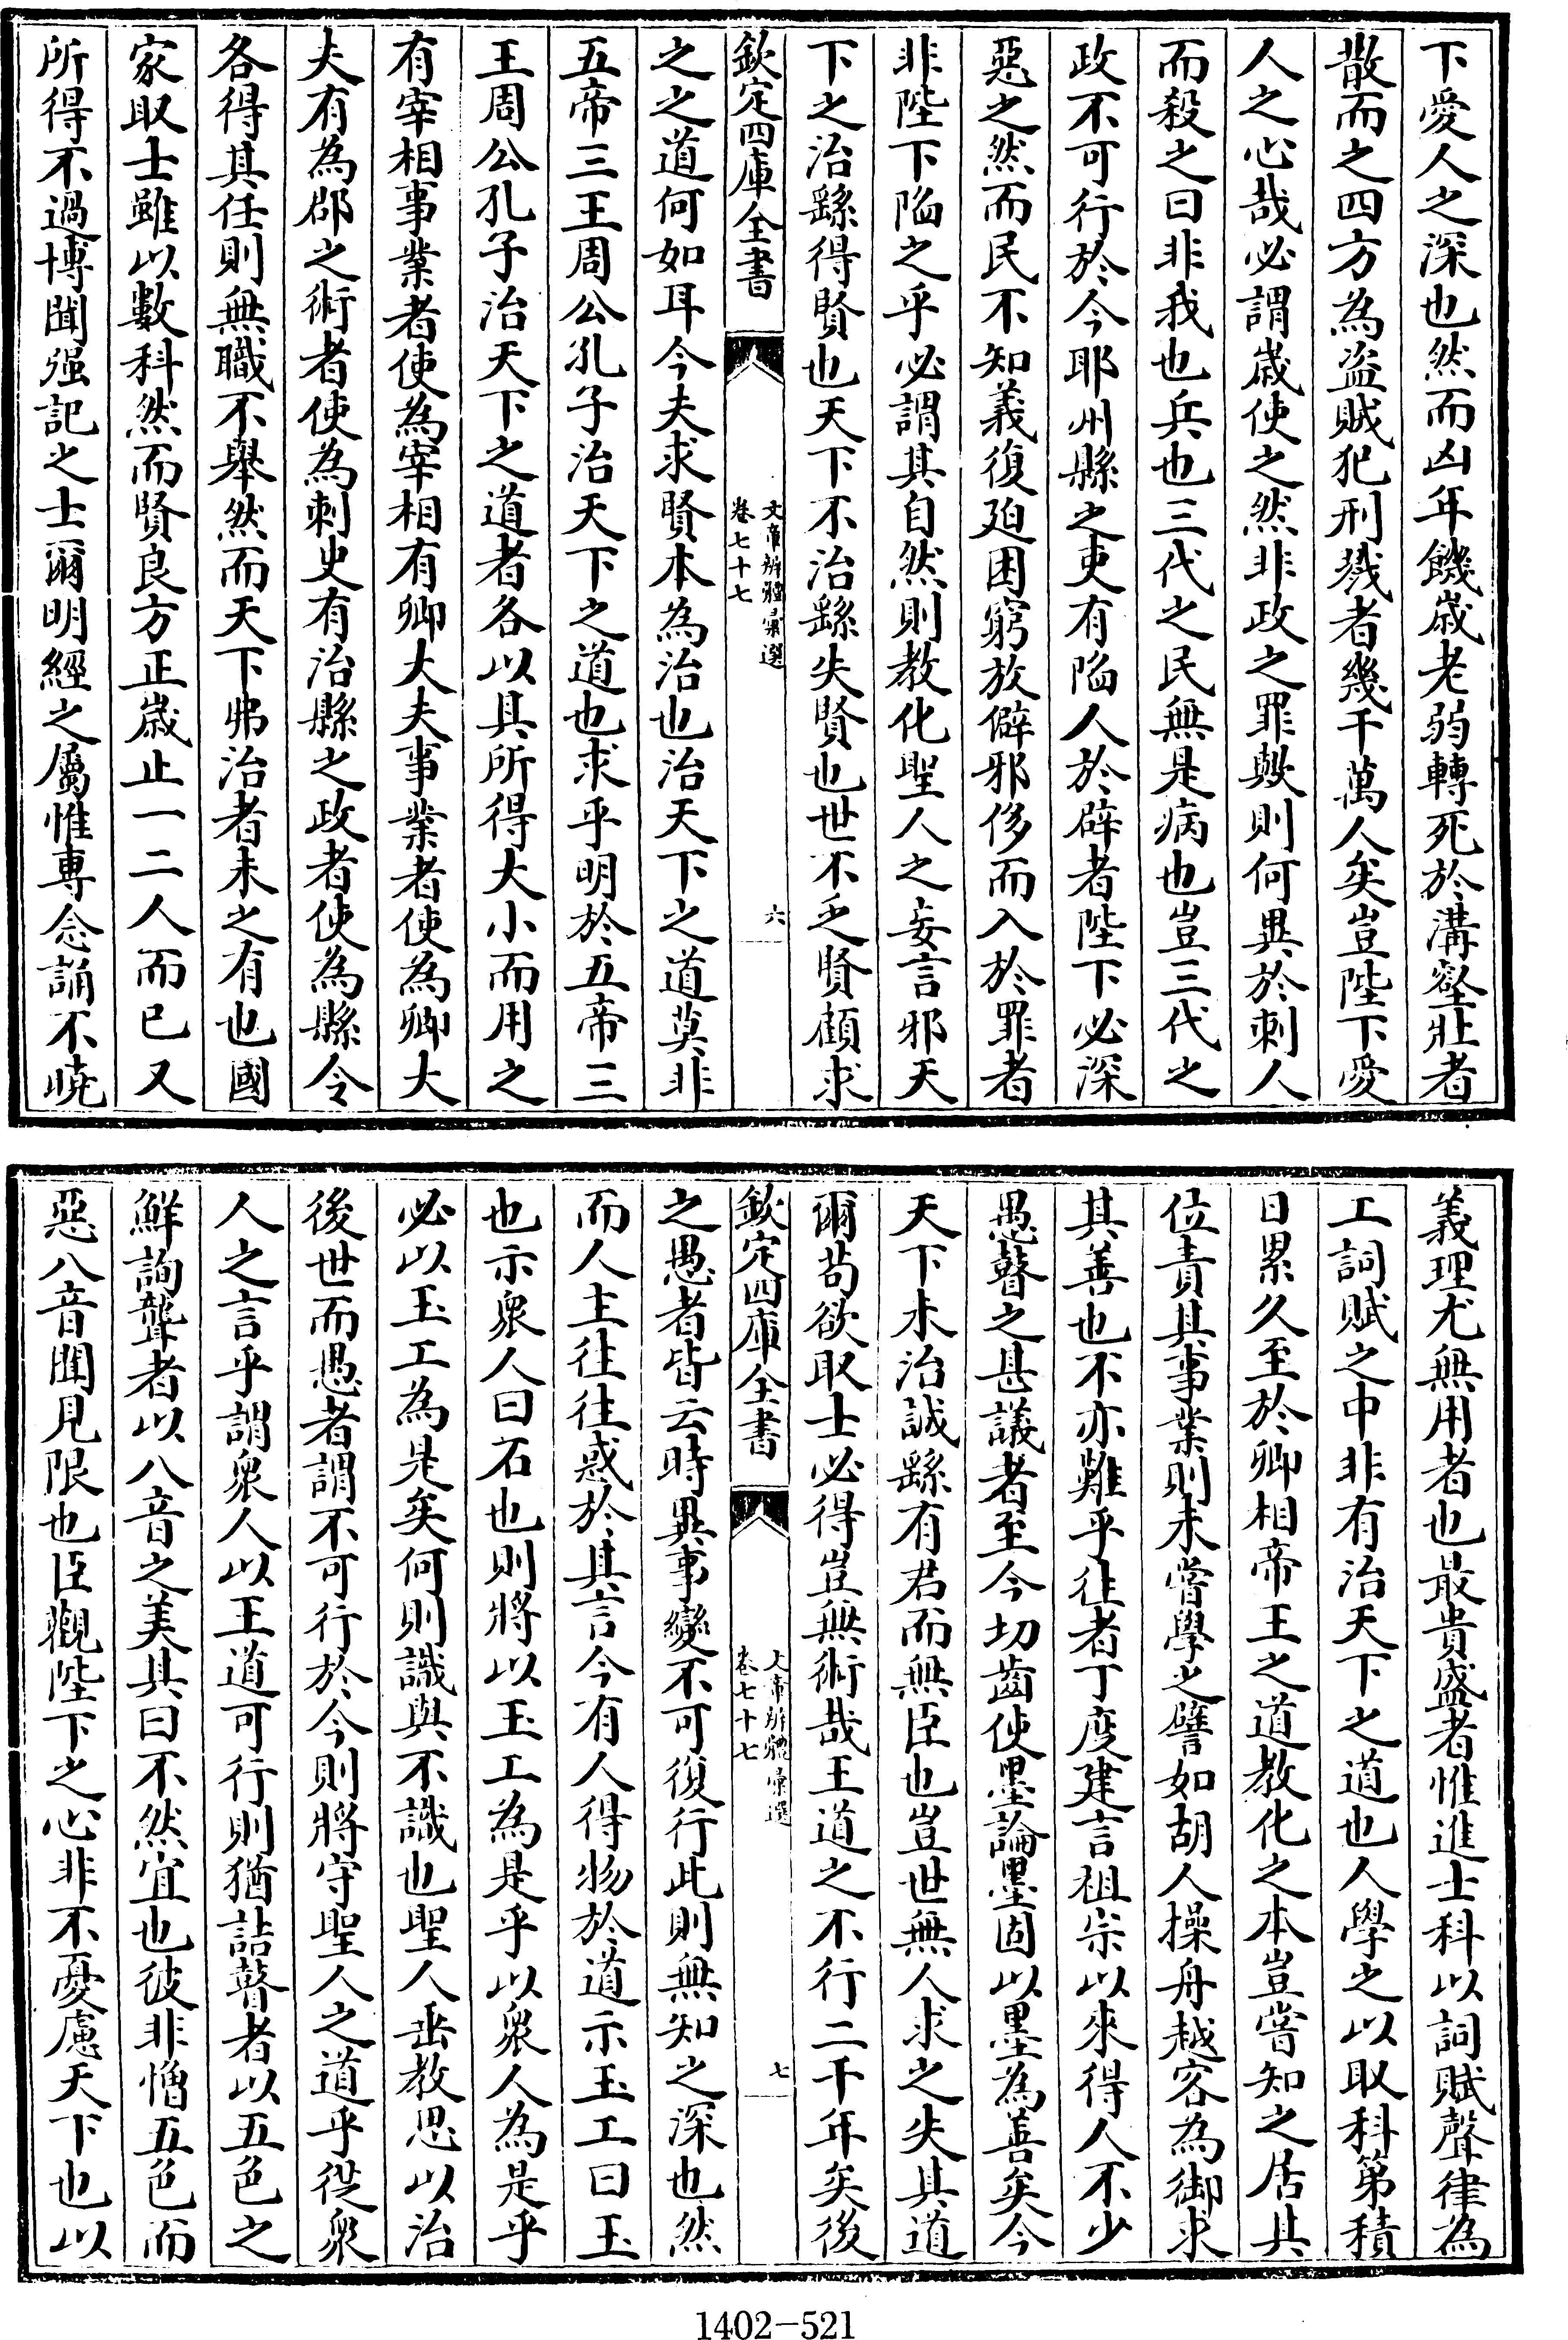 下愛人之深也然而凶年饑歳老弱轉死於溝壑壯者
散而之四方為盜賊犯刑戮者幾千萬人矣豈陛下愛
人之心哉必謂歳使之然非政之罪歟則何異於刺人
而殺之曰非我也兵也三代之民無是病也豈三代之
政不可行於今耶州縣之吏有陷人於辟者陛下必深
惡之然而民不知義復廹困窮放僻邪侈而入於罪者
非陛下陷之乎必謂其自然則教化聖人之妄言邪天
下之治繇得賢也天下不治繇失賢也世不乏賢顧求
欽定四庫全書
文章辨體彚選
卷七十七
六
之之道何如耳今夫求賢本為治也治天下之道莫非
五帝三王周公孔子治天下之道也求乎明於五帝三
王周公孔子治天下之道者各以其所得大小而用之
有宰相事業者使為宰相有卿大夫事業者使為卿大
夫有為郡之術者使為刺史有治縣之政者使為縣令
各得其任則無職不舉然而天下弗治者未之有也國
家取士雖以數科然而賢良方正歳止一二人而已又
所得不過博聞强記之士爾明經之屬惟專念誦不曉
義理尤無用者也最貴盛者惟進士科以詞賦聲律為
工詞賦之中非有治天下之道也人學之以取科第積
日累久至於卿相帝王之道教化之本豈嘗知之居其
位責其事業則未嘗學之譬如胡人操舟越客為御求
其善也不亦難乎往者丁度建言祖宗以來得人不少
愚瞽之甚議者至今切齒使墨論墨固以墨為善矣今
天下未治誠繇有君而無臣也豈世無人求之失其道
爾苟欲取士必得豈無術哉王道之不行二千年矣後
欽定四庫全書
文章辨體彚選
卷七十七
七
之愚者皆云時異事變不可復行此則無知之深也然
而人主往往惑於其言今有人得物於道示玉工曰玉
也示衆人曰石也則將以玉工為是乎以衆人為是乎
必以玉工為是矣何則識與不識也聖人垂教思以治
後世而愚者謂不可行於今則將守聖人之道乎從衆
人之言乎謂衆人以王道可行則猶詰瞽者以五色之
鮮詢聾者以八音之美其曰不然宜也彼非憎五色而
惡八音聞見限也臣觀陛下之心非不憂慮天下也以
1402-521